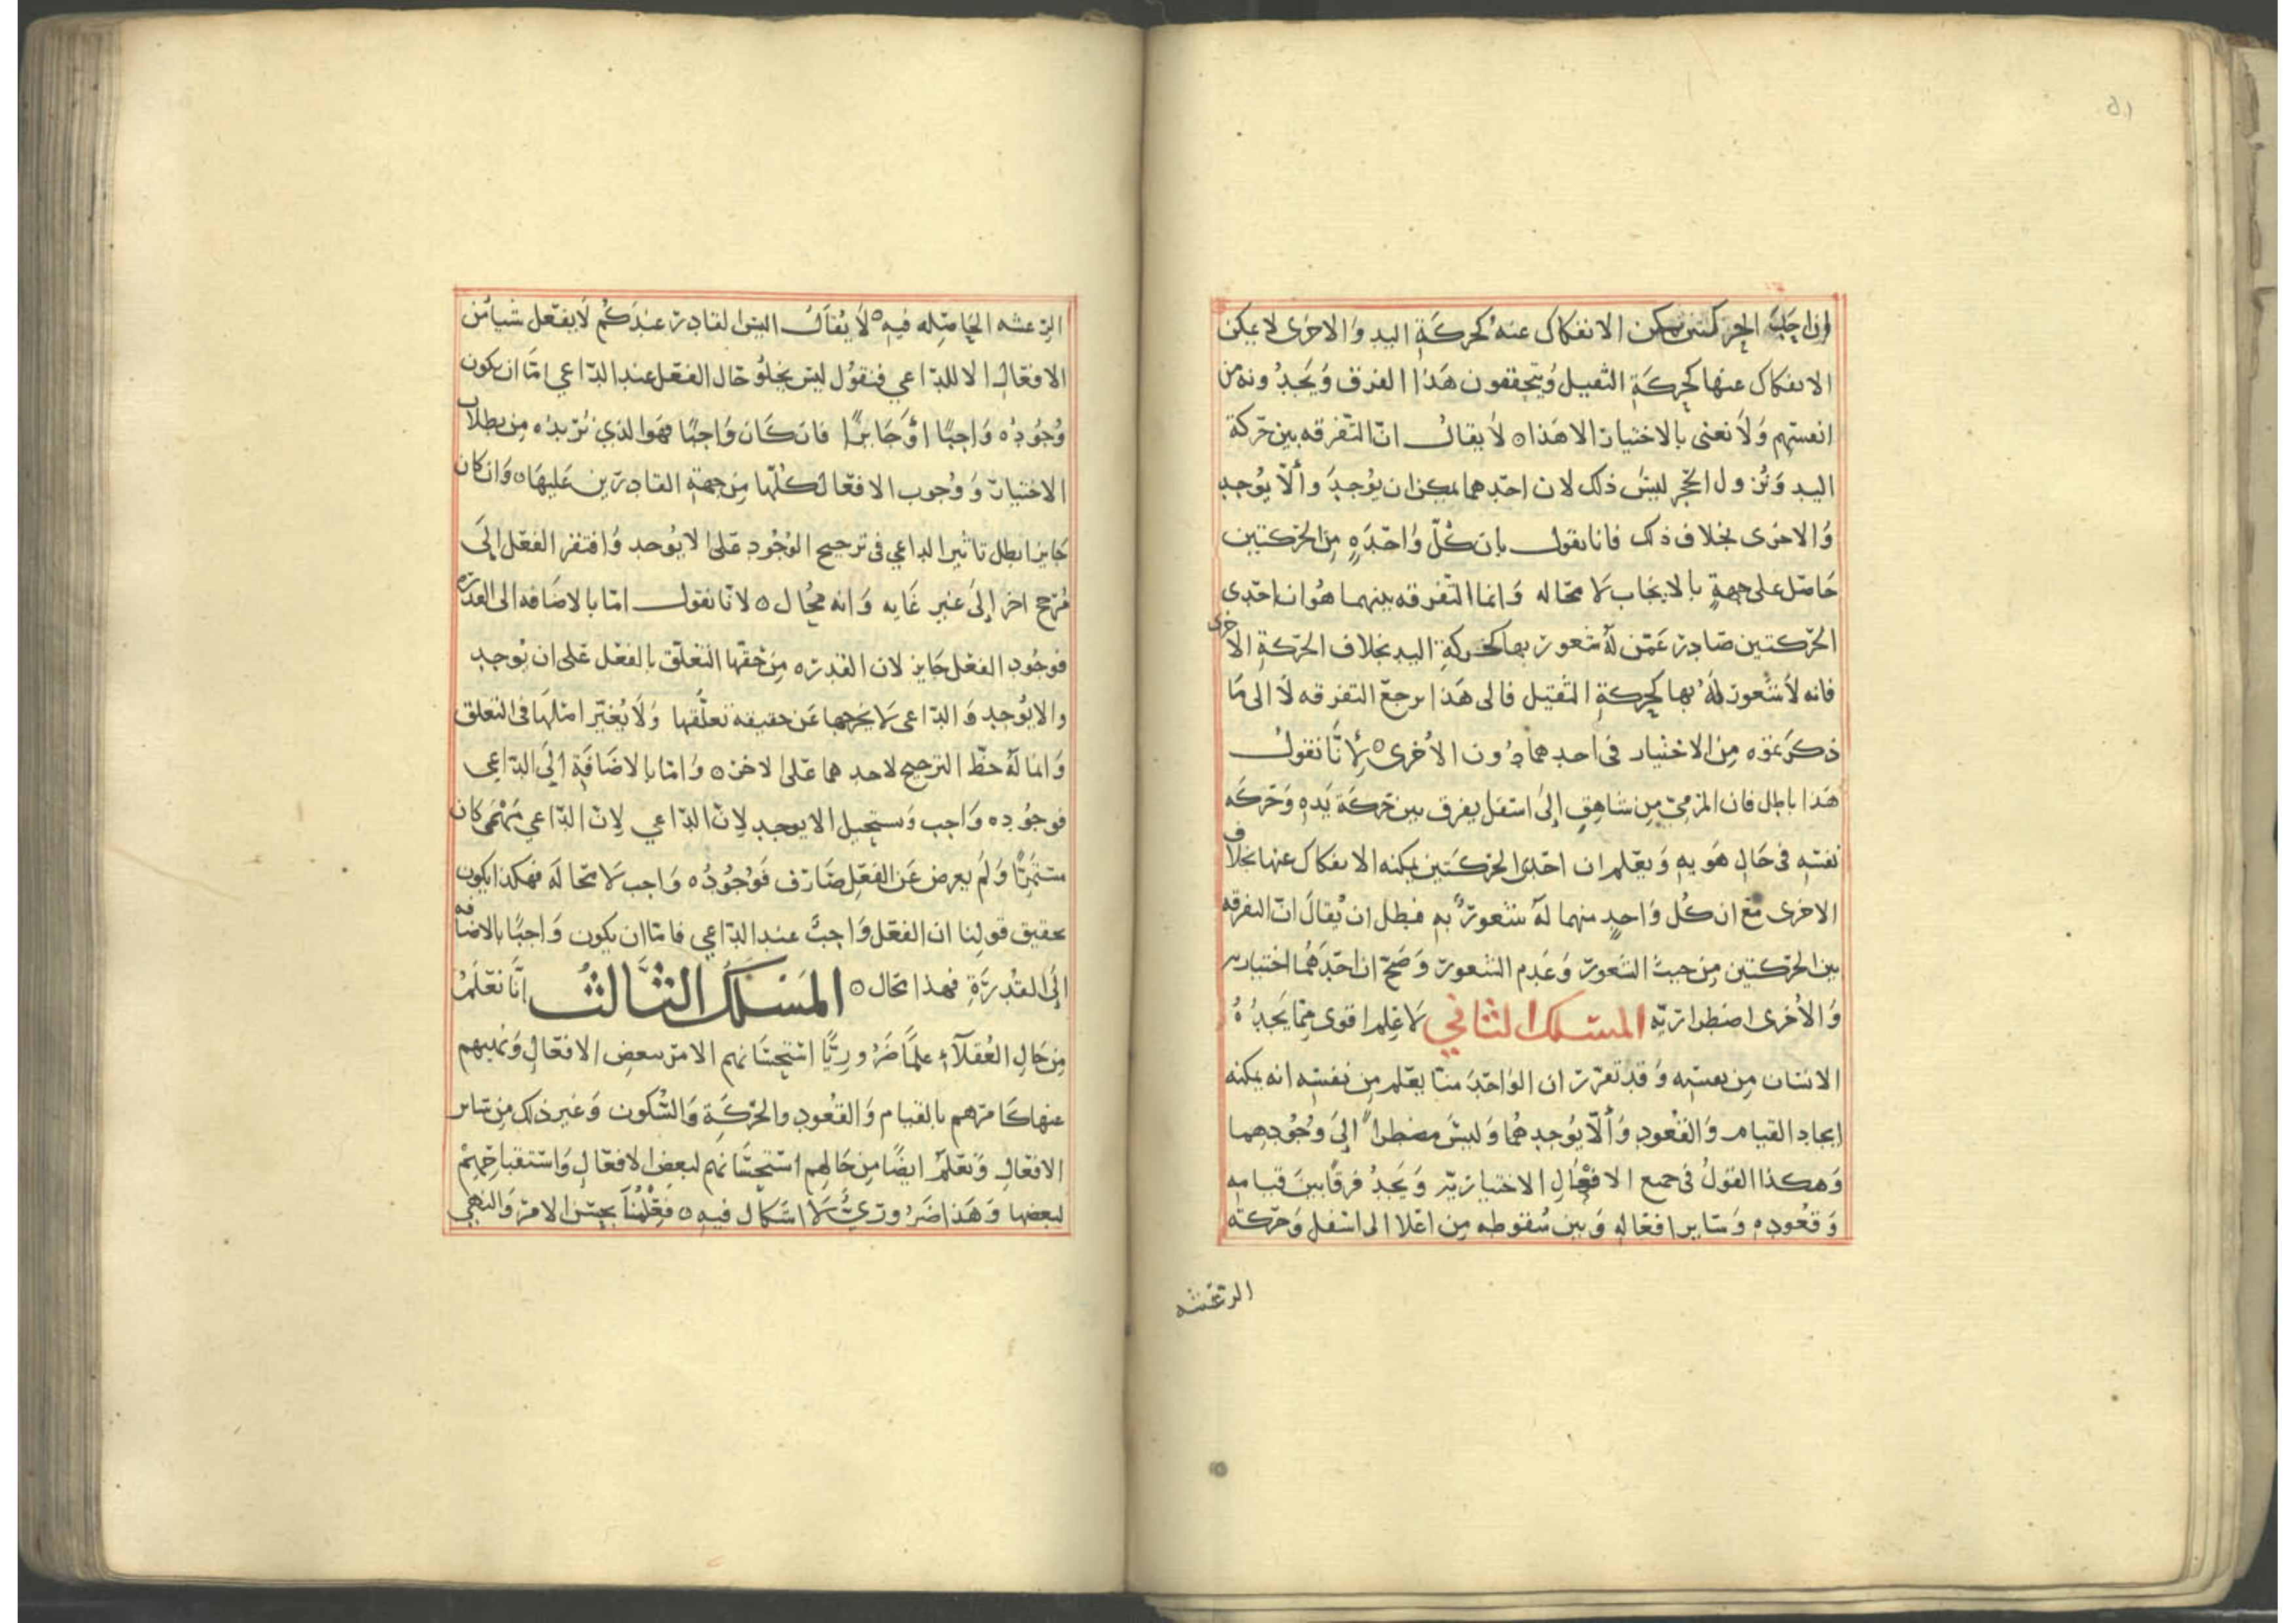 وان احدى الحركتين يمكن الانفكاك عنه كحركة اليد والاخرى لا يمكن
الانفكاك عنها كحركة الثقيل ويتحققون هذا الفرق ويجدونه من
انفسهم ولا نعنى بالاختيار الا هذا ه لا يقال ان التفرقه بين حركة
اليد ونزول الحجر ليس ذلك لان احدهما يمكن ان يوجد وألّا يوجد
والاخرى بخلاف ذلك فانا نقول بان كلّ واحدةٍ من الحركتين
حاصل على جهةٍ بالايجاب لا محاله وانما التفرقه بينهما هو ان احدى
الحركتين صادر عمّن له شعور بها كحركة اليد بخلاف الحركة الاخرى
فانه لا شعور له بها كحركة الثقيل فالى هذا يرجع التفرقه لا الى ما
ذكرتموه من الاختيار فى احدهما دون الأخرى ه لأنّا نقول
هذا باطل فان المرميّ من شاهقٍ إلى اسفل يفرق بين حركة يده وحركه
نفسه فى حال هويه ويعلم ان احدى الحركتين يمكنه الانفكاك عنها بخلاف
الاخرى مع ان كل واحدٍ منهما له شعورٌ به فبطل ان يُقال انّ التفرقه
بين الحركتين من حيث الشعور وعدم الشعور وصحّ ان احدهما اختياريه
والأخرى اضطراريّه المسلك الثاني لا علم اقوى مما يجدُهُ
الانسان من نفسه وقد تقرر ان الواحد منا يعلم من نفسه انه يمكنه
ايجاد القيام والقعود وألّا يوجدهما وليس مضطراً إلى وجودهما
وهكذا القول فى جمع الافعال الاختياريّه ويجدُ فرقًا بين قيامه
وقعوده وساير افعاله وبين سقوطه من اعلا الى اسفل وحركة
الرعشه
الرعشه الحاصله فيه ه لا يُقال اليس القادر عندكم لا يفعل شيأ من
الافعال الا للداعي فنقول ليس يخلو حال الفعل عند الداعي امّا ان يكون
وجوده واجبًا او جايزًا فان كان واجبًا فهو الذي نريده من بطلان
الاختيار ووجوب الافعال كلّها من جهة القادرين عليها ه وان كان
جايزا بطل تاثير الداعي فى ترجيح الوجود على الا يوجد وافتقر الفعل إلى
مرجح اخر إلى غير غايه وانه محال ه لانّا نقول امّا بالاضافه الى القدرة
فوجود الفعل جايز لان القدره من حقها التعلّق بالفعل على ان يوجد
والا يوجد والدّاعى لا يخرجها عن حقيقة تعلّقها ولا يُغيّر امثلها فى التعلق
وانما له حظّ الترجيح لاحدهما على الاخر ه وامّا بالاضافةِ إلى الدّاعي
فوجوده واجب ويستحيل الا يوجد لانّ الدّاعي لانّ الدّاعي مهمى كان
مستمرًّا ولم يعرض عن الفعل صارف فوجوده واجب لا محاله فهكذا يكون
تحقيق قولنا ان الفعل واجبٌ عند الدّاعي فامّا ان يكون واجبًا بالاضافه
إلى القدرةِ فهذا محال ه المسلك الثالث انّا نعلم
من حال العقلآء علمًا ضروريًّا استحسانهم الامر ببعض الافعال ونهيهم
عنها كامرهم بالقيام والقعود والحركة والسّكون وغير ذلك من ساير
الافعال ونعلم ايضًا من حالهم استحسانهم لبعض الافعال واستقباحهمْ
لبعضها وهذا ضروريٌّ لا اشكال فيه ه فعِلمُنا بحسن الامر والنهي